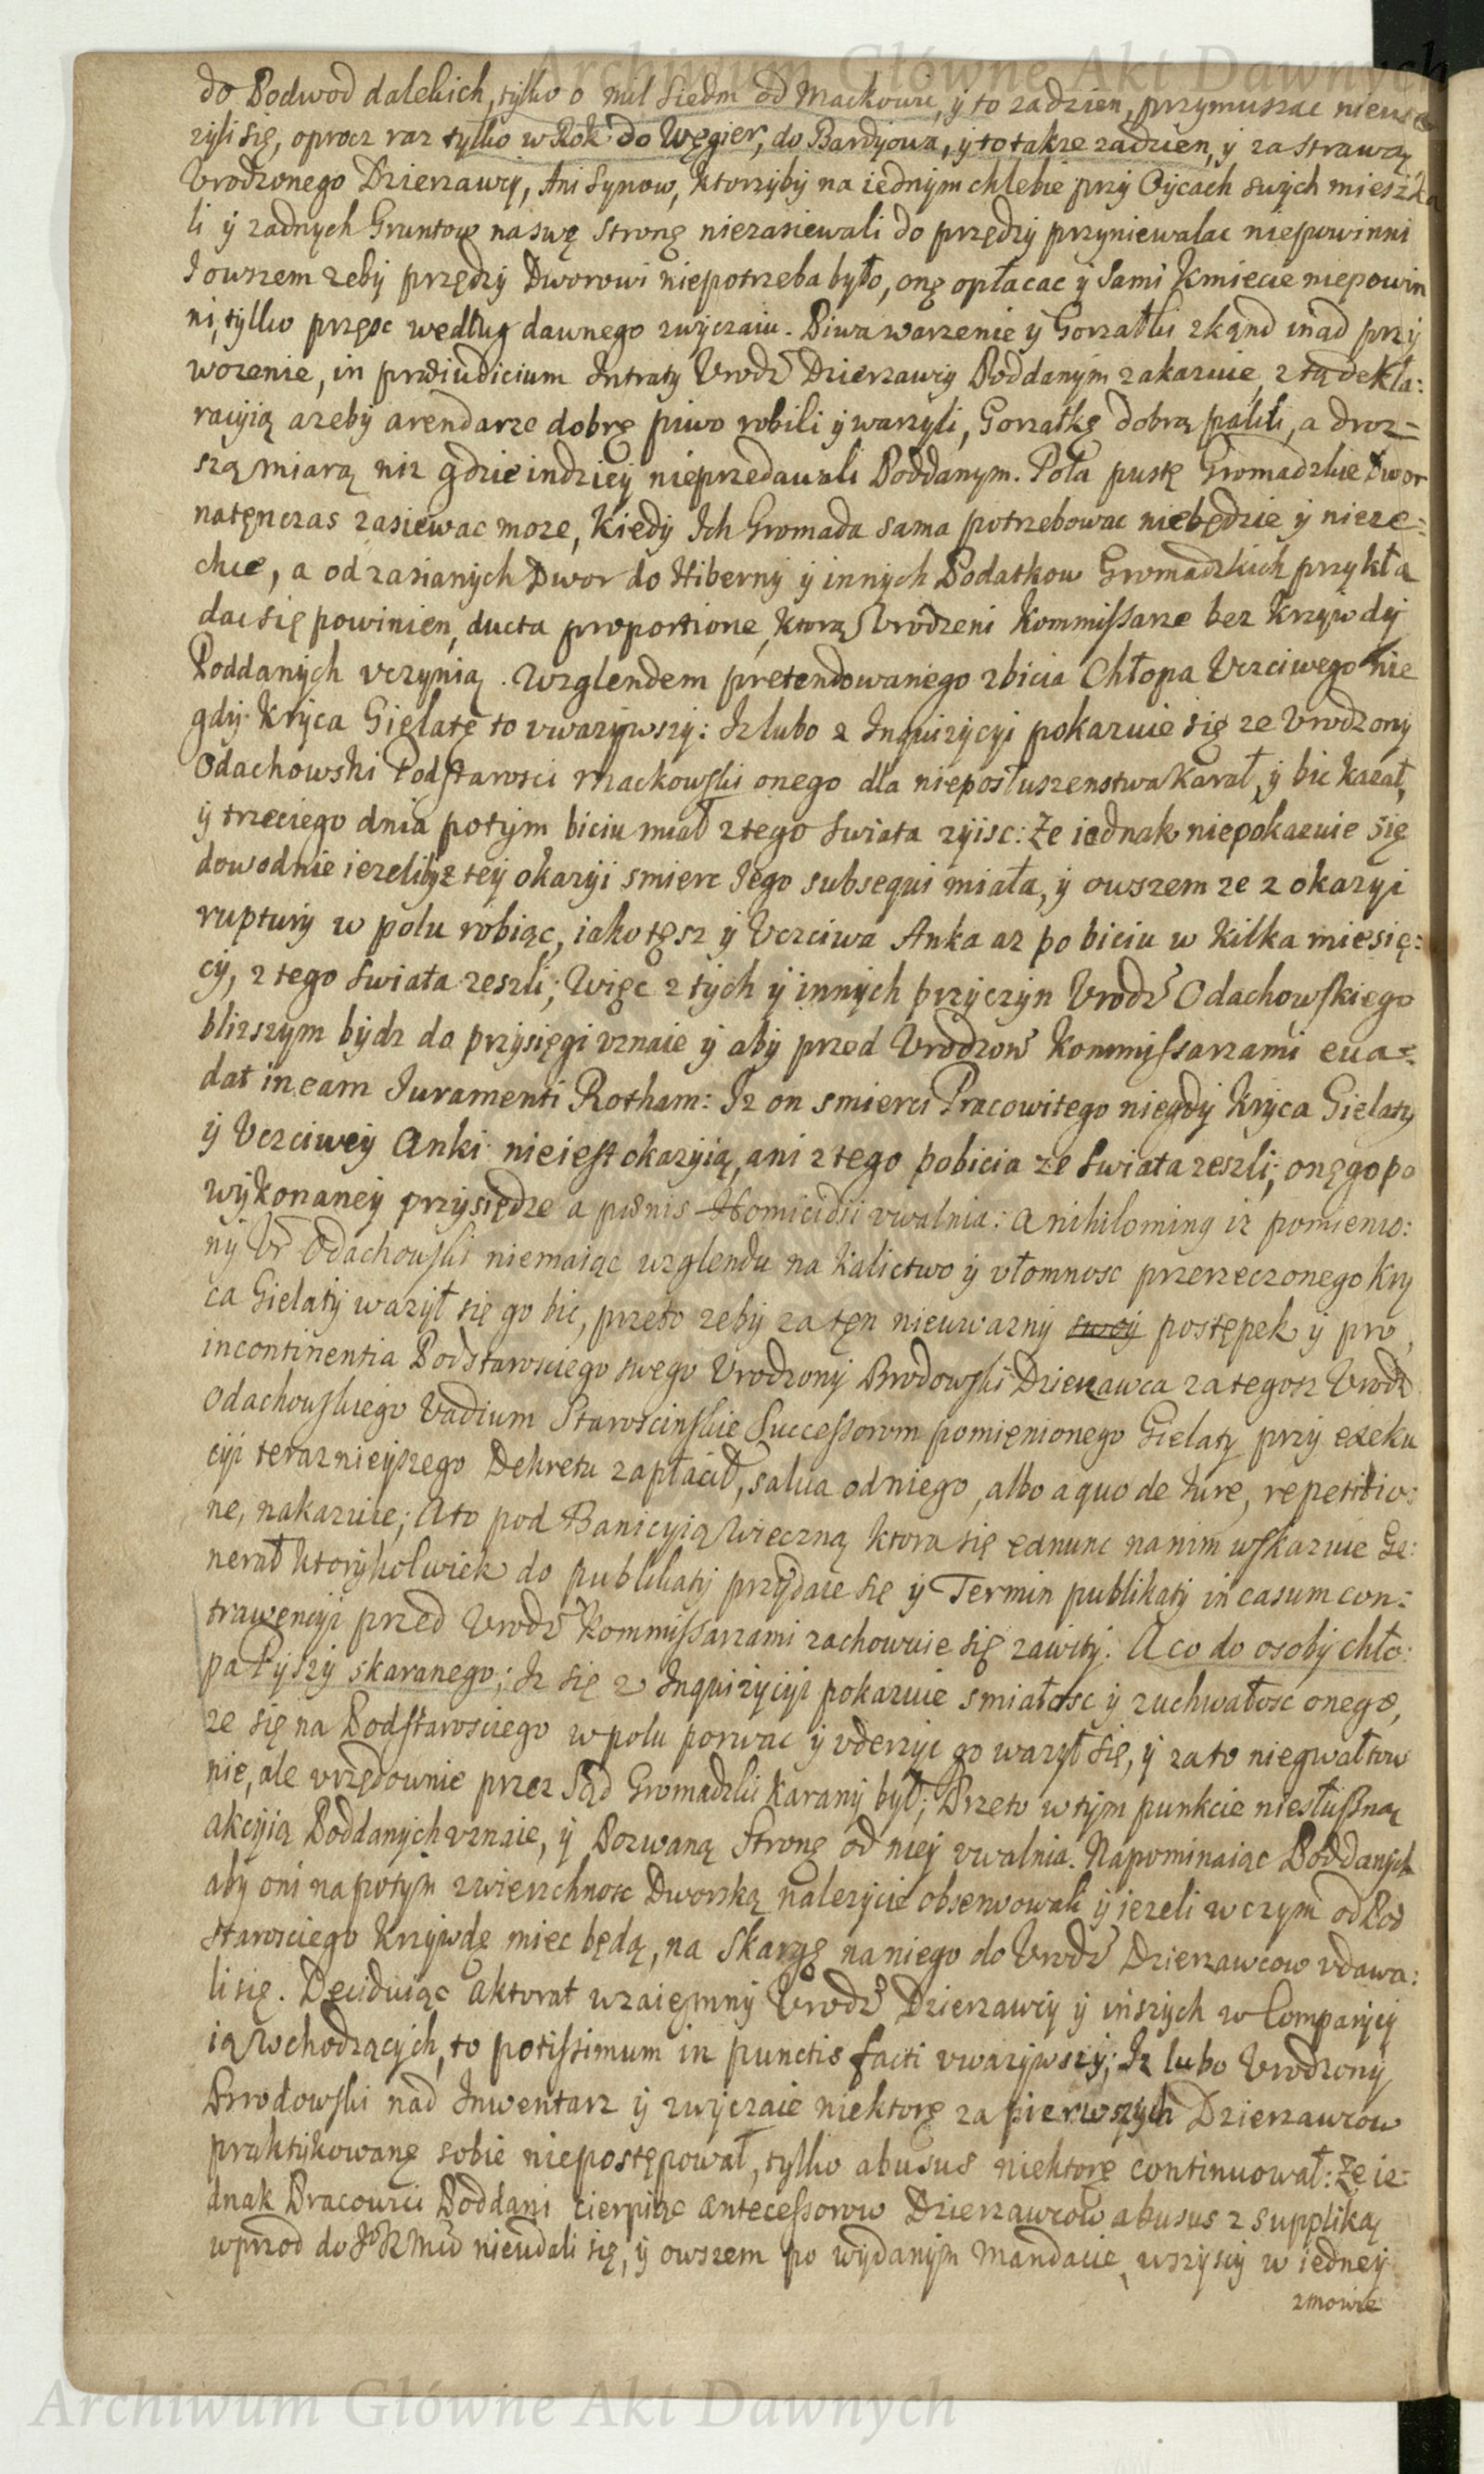 Archiwum Główne Akt Dawnych
do Podwod dalekich, tylko o mil siedm od Mackowic, ÿ to za dzien, przymuszac niewa
zÿli się, oprocz raz tylko w Rok do Węgier, do Bardÿowa, ÿ to takze za dzien, ÿ za strawą
Vrodzonego Dzierzawcÿ, Ani Synow, ktorzÿbÿ na iednÿm chlebie przÿ Oÿcach swÿch mieszka
li ÿ zadnych Gruntow na swę stronę niezasiewali do przędzÿ przyniewalac niepowinni
I owszem zebÿ przędzÿ Dworowi niepotrzeba było, onę opłacac ÿ sami Kmiecie niepowin
ni, tylko przęsc według dawnego zwÿczaiu. Piwa warzenie ÿ Gorzałki zkąnd inąd przÿ
wozenie, in præiudicium Intraty Vrodz Dzierzawcÿ Poddanÿm zakazuie, z tą dekla:
racÿią azebÿ arendarze dobrę piwo robili ÿ warzÿli, Gorzałkę dobrą palili, a droz=
szą miarą niz gdzie indzieÿ nieprzedawali Poddanym. Pola pustę Gromadzkie Dwor
natęnczas zasiewac moze, kiedÿ Ich Gromada sama potrzebowac niebędzie ÿ nieze=
chce, a od zasianÿch Dwor do Hibernÿ ÿ innÿch Podatkow Gromadzkich przykła
dac się powinien, ducta proportione, ktorą Vrodzeni Kommissarze bez krzÿwdÿ
Poddanÿch vczynią. Wzglendem pretendowanego zbicia Chłopa Vczciwego nie
gdÿ Krÿca Gielatę to vwazÿwszÿ: Iz lubo z Inquizÿcÿi pokazuie się ze Vrodzony
Odachowski Podstarosci Mackowski onego dla nieposłuszenstwa karał, ÿ bic kazał,
ÿ trzeciego dnia potÿm biciu miał z tego swiata zÿisc: Ze iednak niepokazuie się
dowodnie iezelibÿ z teÿ okazÿi smierc Iego subsequi miała, ÿ owszem ze z okazÿi
rupturÿ w polu robiąc, iako tęsz ÿ Vczciwa Anka az po biciu w kilka miesię:
cÿ, z tego swiata zeszli; Więc z tÿch ÿ innÿch przÿczÿn Vrodz Odachowskiego
blizszym bÿdz do przÿsięgi vznaie ÿ abÿ przed Vrodzow Kommissarzami eua=
dat in eam Iuramenti Rotham: Iz on smierci Pracowitego niegdÿ Krÿca Gielatÿ
ÿ Vczciweÿ Anki nieiest okazÿią, ani z tego pobicia ze swiata zeszli; onęgo po
wÿkonaneÿ przÿsiędze a pœnis Homicidii vwalnia: A nihiloming iz pomienio:
nÿ Vr Odachowski niemaiąc wzglendu na kalictwo ÿ vłomnosc przerzeczonego Krÿ
ca Gielatÿ wazÿł się go bic, przeto zebÿ za tęn nieuwaznÿ swoÿ postępek ÿ pro
incontinentia Podstarosciego swego Vrodzonÿ Brodowski Dzierzawca za tegosz Vrodz
Odachowskiego Vadium Staroscinskie Successorom pomięnionego Gielatÿ przÿ exeku
cÿi teraznieÿszego Dekretu zapłacił, salua od niego, albo a quo de Iure, repetitio:
ne, nakazuie; A to pod Banicÿią Wieczną ktora się ex nunc na nim wskazuie Ge:
nerał ktorÿkolwiek do publikatÿ przÿdaie się ÿ Termin publikatÿ in casum con:
trawencÿi przed Vrodz Kommissarzami zachowuie się zawitÿ. A co do osobÿ chło:
pa Łÿszÿ skaranego; Iz się z Inquizÿcÿi pokazuie smiałosc ÿ zuchwałosc onego,
ze się na Podstarosciego w polu porwac ÿ vderzÿc go wazÿł się, ÿ za to niegwałtow
nie, ale vrzędownie przez Sąd Gromadzki karanÿ bÿł; Przeto w tÿm punkcie niesłuszną
akcÿią Poddanÿch vznaie, ÿ Pozwaną Stronę od nieÿ vwalnia. Napominaiąc Poddanÿch
abÿ oni napotÿm zwierzchnosc Dworską nalezÿcie obserwowali ÿ iezeli w czym od Pod
starosciego krzÿwdę miec będą, na skargę na niego do Vrodz Dzierzawcow vdawa:
li się. Deciduiąc aktorat wzaięmnÿ Vrodz Dzierzawcÿ ÿ inszÿch w Comparÿcÿ
ią wchodzącÿch, to potissimum in punctis facti vwazÿwszÿ; Iz lubo Vrodzonÿ
Brodowski nad Inwentarz ÿ zwÿczaie niektorę za pierwszÿch Dzierzawcow
praktÿkowanę sobie niepostępował, tylko abusus niektorę continuował: Ze ie=
dnak Pracowici Poddani cierpiąc antecessorow Dzierzawcow abusus z suppliką
wprzod do JKMci nieudali się, ÿ owszem po wÿdanÿm Mandacie, wszÿscÿ w iedneÿ
zmowie
Archiwum Główne Akt Dawnych